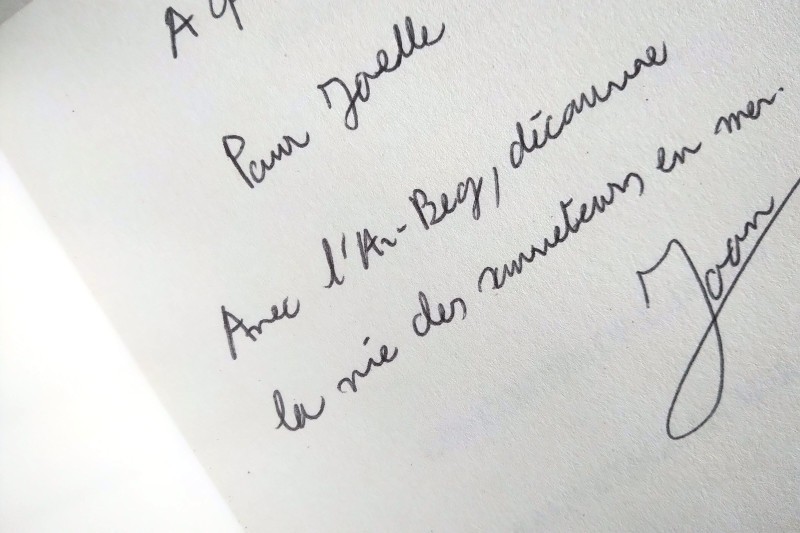 Pour Joelle
Avec l'Ar-Beg, découvre
la vie des sauveteurs en mer.
Joan